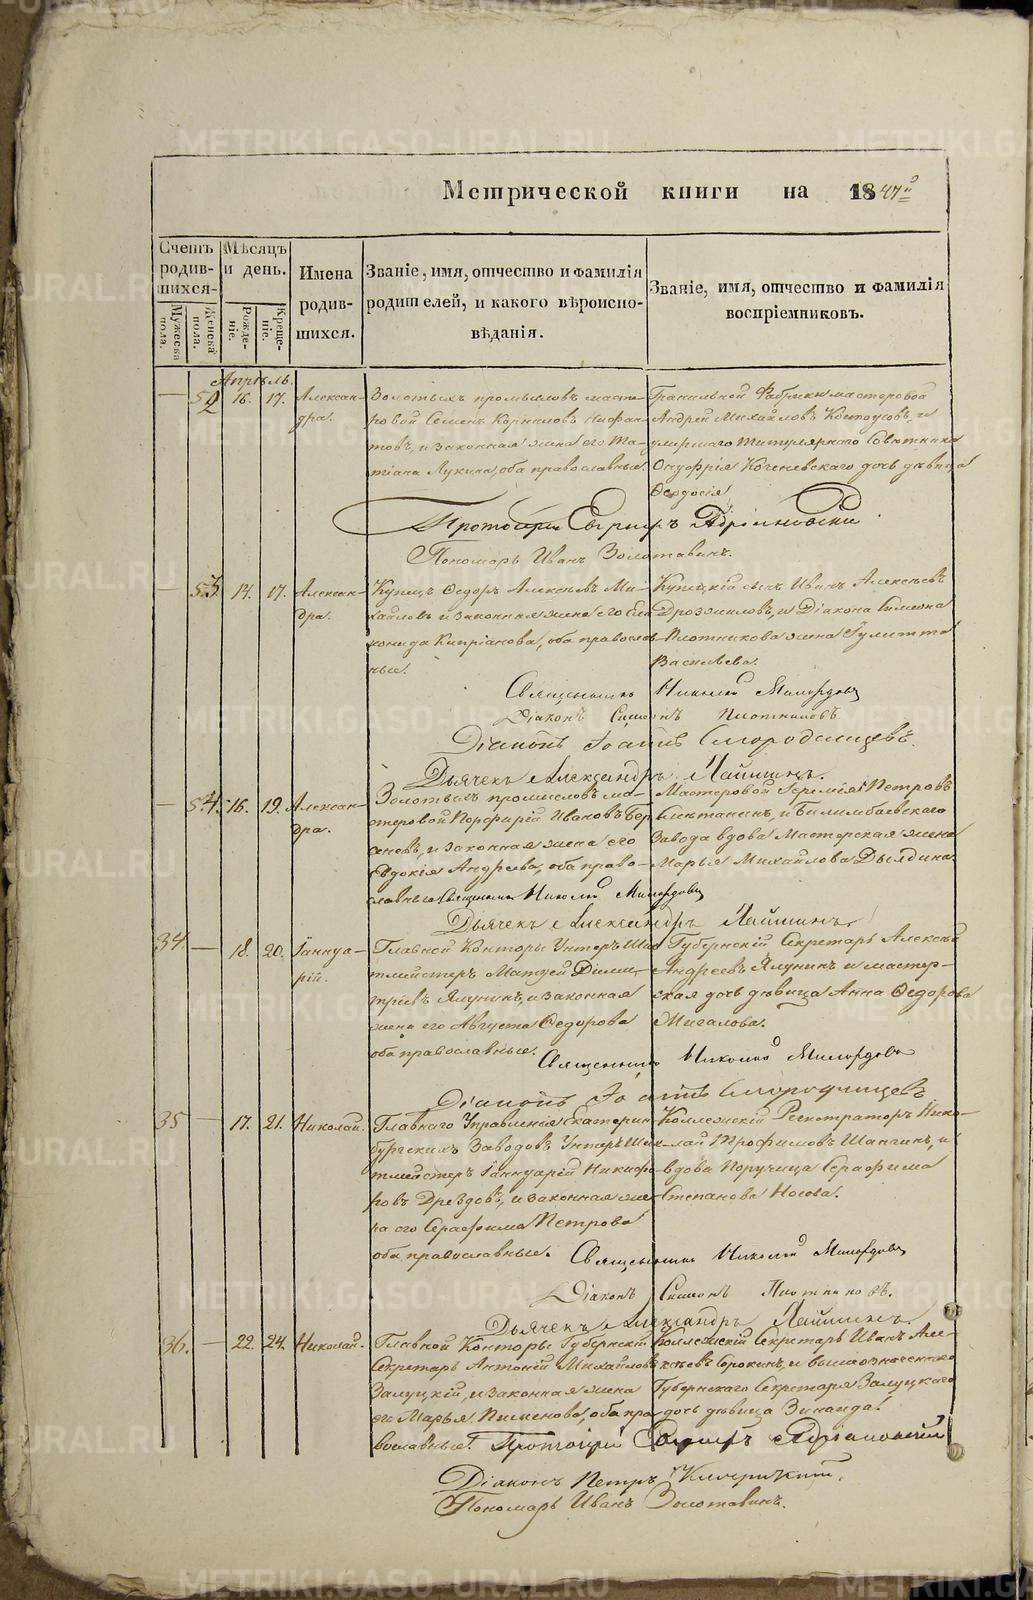 Метрической книги на 1847й
Счетъ родившихся.
Мужеска пола.
Женска пола.
Мѣсяцъ и день.
Рожденіе.
Крещеніе.
Имена родившихся.
Званіе, имя, отчество и фамилія родителей, и какого вѣроисповѣданія.
Званіе, имя, отчество и фамилія воспріемниковъ.
Апрѣль.
— 52 16. 17. Алексан-
дра.
Золотыхъ промысловъ масте-
ровой Семенъ Корниловъ
товъ, и законная жена его Та-
тіана Лукина, оба православные.
Гранильной Фабрики мастеровой
Андрей Михайловъ и
умершаго Титулярнаго Совѣтника
Онуфрія дочь дѣвица
Ѳеодосія.
Протоіерей
Пономарь Иванъ Золотавинъ.
— 53. 14. 17. Алексан-
дра.
Купецъ Ѳедоръ Алексѣевъ Ми-
хайловъ и законная жена его
Кипріанова, оба православ-
ные.
Купецкій сынъ Иванъ Алексѣевъ
Дрозжиловъ, и Діакона Симеона
Плотникова жена Іулитта
Васильева.
Священникъ Николай Милордовъ
Діаконъ Симеонъ Плотниковъ
Діаконъ Іоаннъ Смородинцевъ.
Дьячекъ Александръ Лаймингъ.
— 54. 16. 19. Алексан-
дра.
Золотыхъ промысловъ ма-
стеровой Порфирій Ивановъ Бер-
сеневъ, и законная жена его
Евдокія Андреева, оба право-
славные.
Мастеровой Іеремія Петровъ
и Билимбаевскаго
Завода вдова Мастерская жена
Марья Михайлова Дылдина.
Священникъ Николай Милордовъ
Дьячекъ Александръ Лаймингъ
34. — 18. 20. Іаннуа-
рій.
Главной Конторы Унтеръ Ших-
тмейстеръ Матѳей Дими-
тріевъ Ялунинъ, и законная
жена его Августа Ѳедорова
оба православные.
Губернскій Секретарь Алексѣй
Андреевъ Ялунинъ и мастер-
ская дочь дѣвица Анна Ѳедорова
Мигалова.
Священникъ Николай Милордовъ
Діаконъ Іоаннъ Смородинцевъ
35 — 17. 21. Николай.
Главнаго Управленія Екатерин-
бургскихъ Заводовъ Унтеръ Ших-
тмейстеръ Іаннуарій Никифо-
ровъ Дрездовъ, и законная же-
на его Серафима Петрова
оба православные.
Коллежскій Регистраторъ Нико-
лай Трофимовъ Шангинъ, и
вдова Поручица Серафима
Степанова Носова.
Священникъ Николай Милордовъ
Діаконъ Симеонъ Плотниковъ.
Дьячекъ Александръ Лаймингъ.
36. — 22. 24. Николай.
Главной Конторы Губернскій
Секретарь Антоній Михайловъ
Залуцкій, и законная жена
его Марья Пименова, оба пра-
вославные.
Коллежскій Секретарь Иванъ Але-
ксѣевъ Сорокинъ, и вышеозначеннаго
Губернскаго Секретаря Залуцкаго
дочь дѣвица Зинаида.
Протоіерей
Діаконъ Петръ
Пономарь Иванъ Золотавинъ.
METRIKI.GASO-URAL.RU